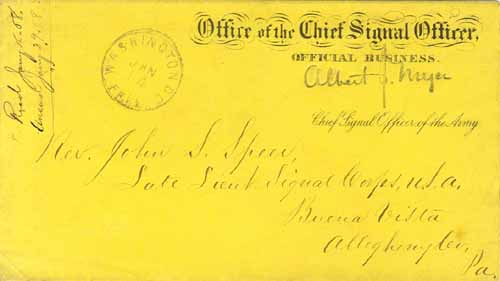 Office of the Chief Signal Officer,
OFFICIAL BUSINESS.
Albert J. Myer
Chief Signal Officer of the Army
WASHINGTON D.C.
JAN
FREE
Rev. John S. Speer,
Late Lieut. Signal Corps, U.S.A.
Buena Vista
Allegheny Co.
Pa.
Recd Jany
Jany 29